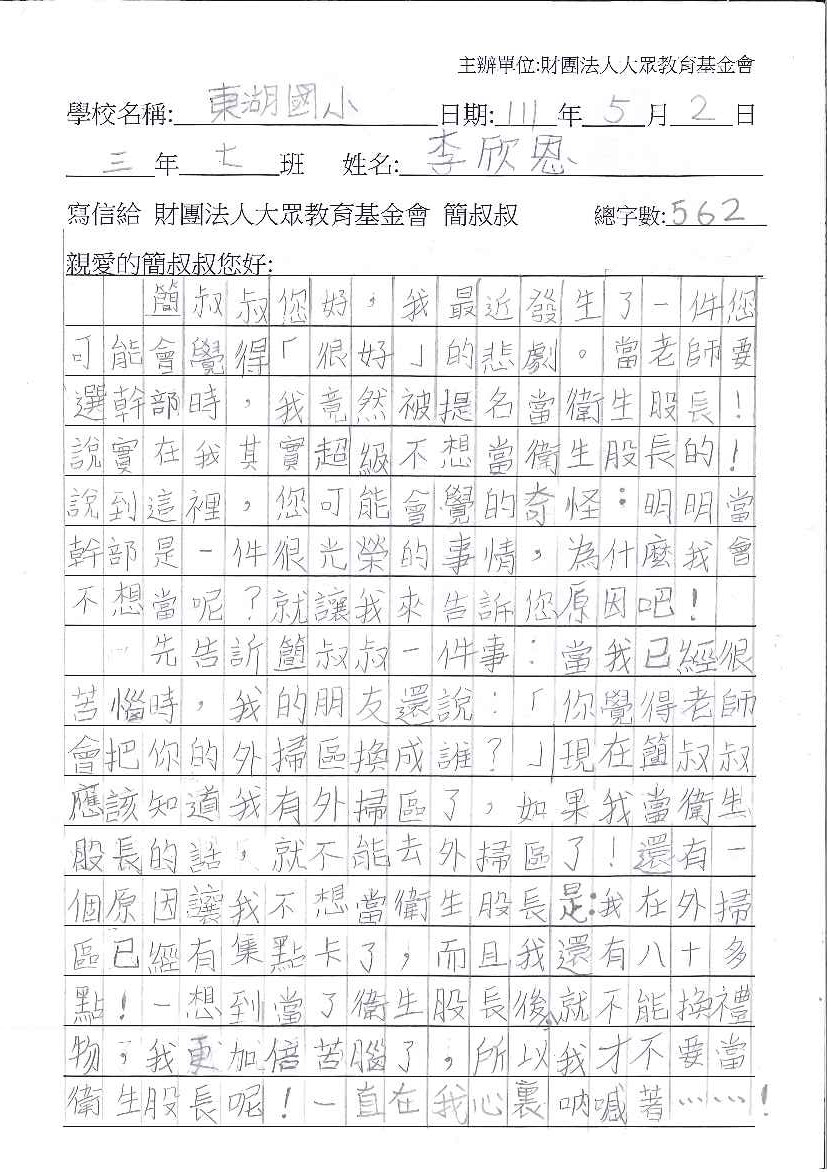 主辦單位:財團法人大眾教育基金會
學校名稱: 東湖國小 日期: 111 年 5 月 2 日
三 年 七 班 姓名: 李欣恩
寫信給 財團法人大眾教育基金會 簡叔叔 總字數: 562
親愛的簡叔叔您好:
簡叔叔您好，我最近發生了一件您
可能會覺得「很好」的悲劇。當老師要
選幹部時，我竟然被提名當衛生股長！
說實在我其實超級不想當衛生股長的！
說到這裡，您可能會覺的奇怪：明明當
幹部是一件很光榮的事情，為什麼我會
不想當呢？就讓我來告訴您原因吧！
先告訴簡叔叔一件事：當我已經很
苦惱時，我的朋友還說：「你覺得老師
會把你的外掃區換成誰？」現在簡叔叔
應該知道我有外掃區了，如果我當衛生
股長的話，就不能去外掃區了！還有一
個原因讓我不想當衛生股長是：我在外掃
區已經有集點卡了，而且我還有八十多
點！一想到當了衛生股長後就不能換禮
物，我更加倍苦腦了，所以我才不要當
衛生股長呢！一直在我心裏吶喊著……！